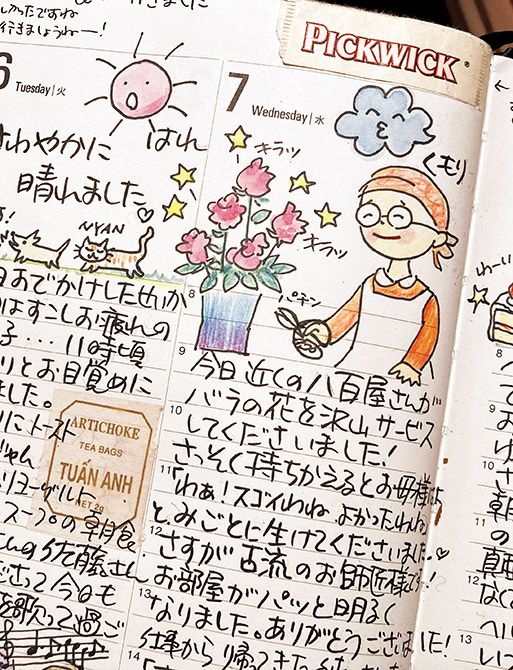 しかったですね
行きましょうねー!
6
Tuesday|火
はれ
さわやかに
晴れました♡
NYAN
日おでかけしたせいか
はすこしお疲れの
子…11時頃
りとお目覚めに
ました。
にトースト
ヨーグルト
スープの朝食
さんの佐藤さん
今日も
を歌って過ご
ARTICHOKE
TEA BAGS
TUẤN ANH
NET 2g
PICKWICK
7
Wednesday|水
くもり
キラッ
キラッ
パチン
8
9
今日 近くの八百屋さんが
バラの花を沢山サービス
10
してくださいました!
さっそく持ちかえるとお母様は
11
「わぁ!スゴイわね よかったわね」
と、みごとに生けてくださいました♡
12
さすが古流のお師匠様です!
お部屋がパッと明るく
13
なりました。ありがとうございました!
仕事から帰ってきた
14
わーい
8
9
10
11
12
13